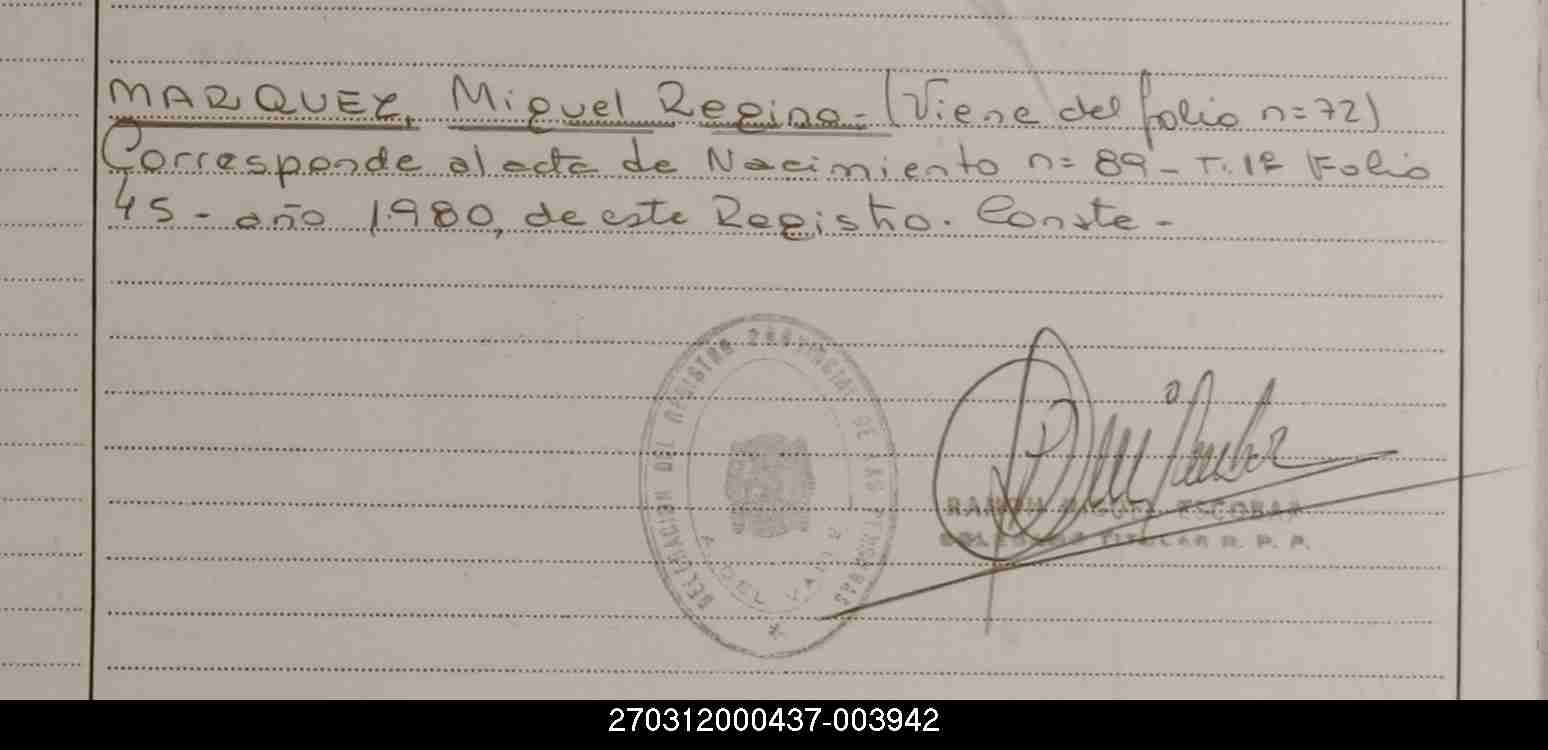 MARQUEZ, Miguel Regino - (Viene del folio n= 72)
Corresponde al acta de Nacimiento n= 89 - T. 1º Folio
45 - año 1.980, de este Registro. Conste -
DELEGACION DEL REGISTRO PROVINCIAL DE LAS PERSONAS
A. DEL VALLE
RAMON MIGUEL ESCOBAR
TITULAR R. P. P.
270312000437-003942